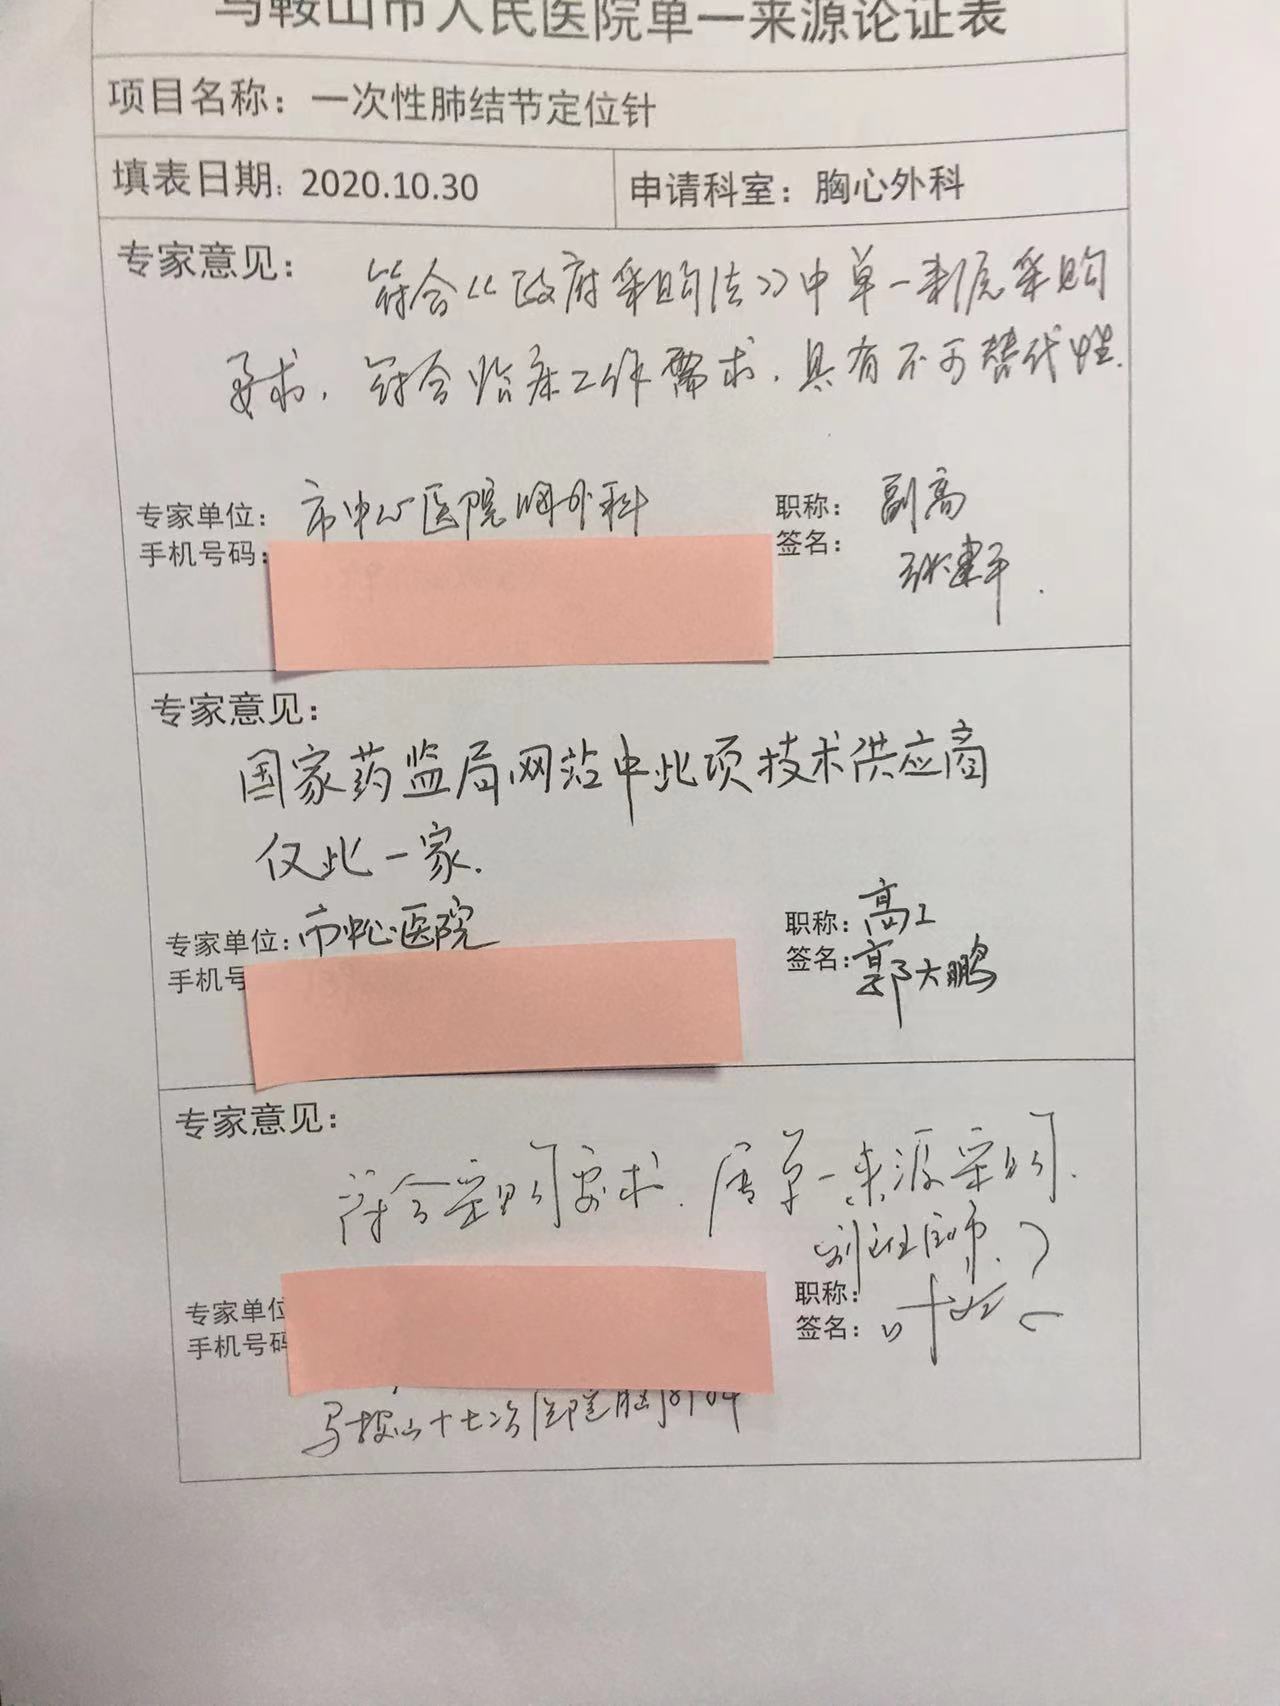 马鞍山市人民医院单一来源论证表
项目名称：一次性肺结节定位针
填表日期：2020.10.30 申请科室：胸心外科
专家意见：
符合《政府采购法》中单一来源采购
要求，符合临床工作需求，具有不可替代性.
专家单位：市中心医院胸外科 职称：副高
手机号码： 签名：张建平
专家意见：
国家药监局网站中此项技术供应商
仅此一家.
专家单位：市中心医院 职称：高工
手机号 签名：郭大鹏
专家意见：
符合采购要求.属单一来源采购.
副主任医师
专家单位 职称：
手机号码 签名：
马鞍山十七冶医院胸外科